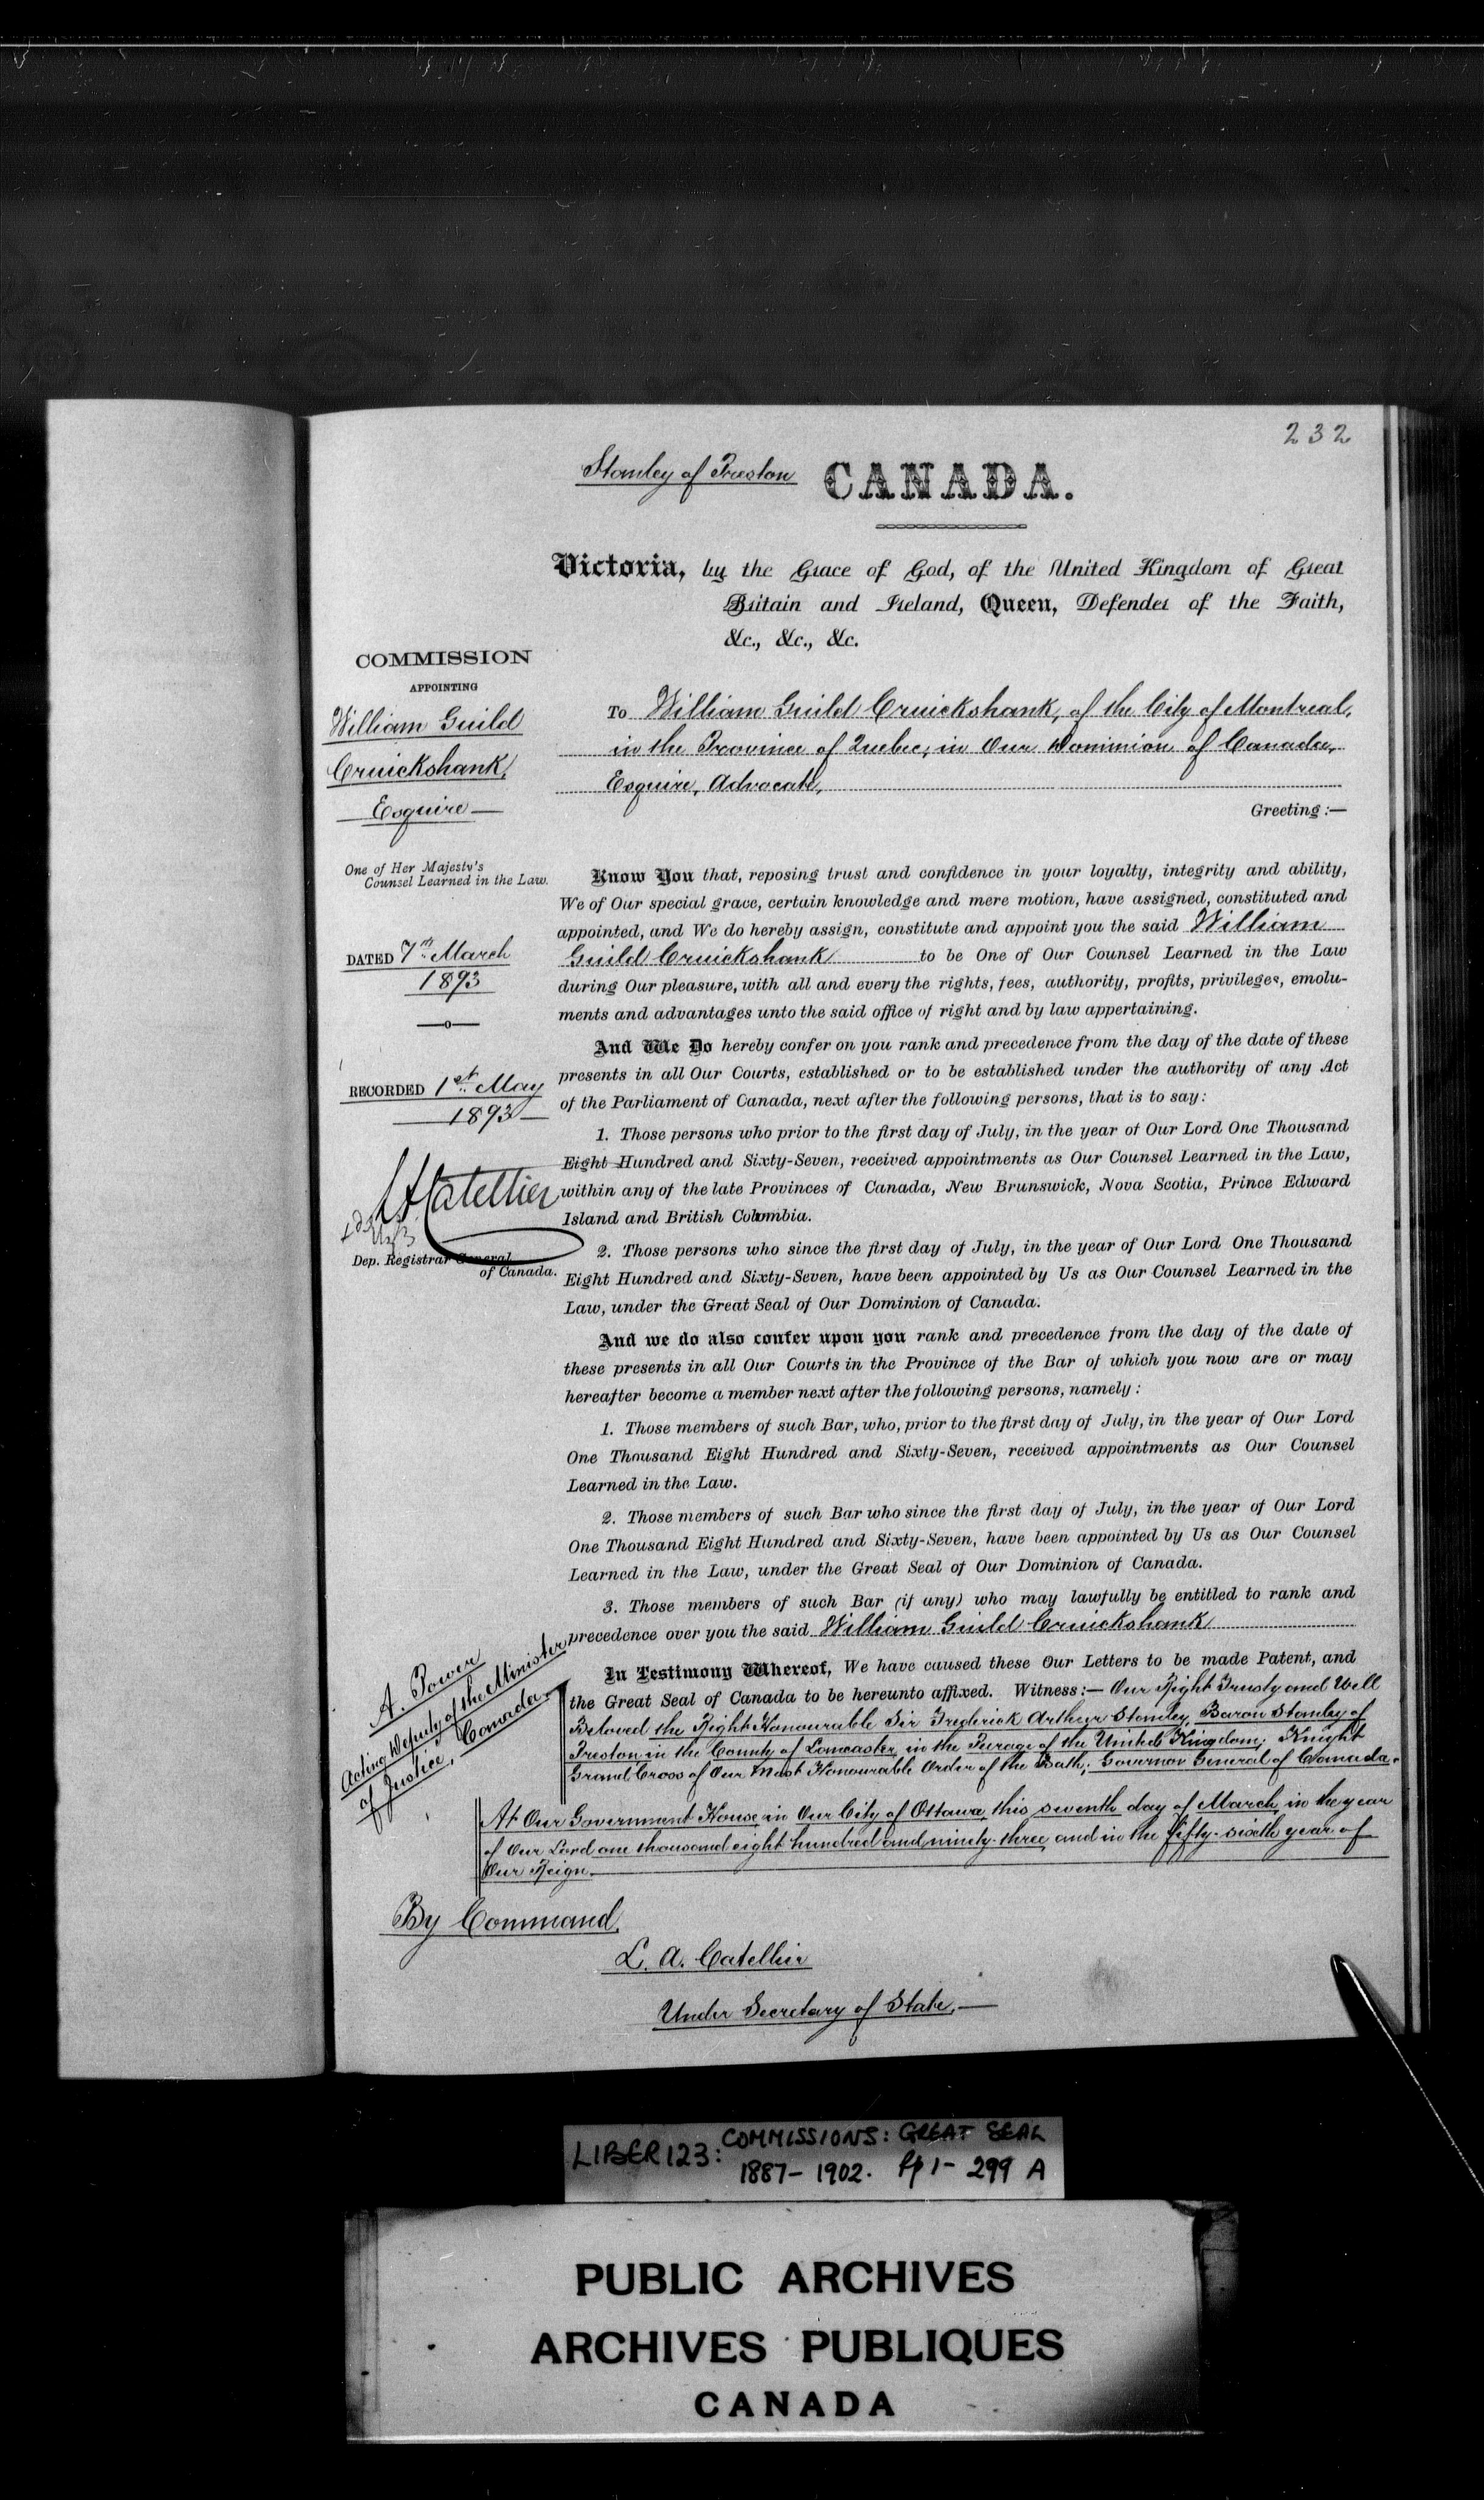 232
Stanley of Preston
CANADA.
Victoria, by the Grace of God, of the United Kingdom of Great
Britain and Ireland, Queen, Defender of the Faith,
&c., &c., &c.
COMMISSION
APPOINTING
William Guild
Cruickshank,
Esquire —
One of Her Majesty's
Counsel Learned in the Law.
DATED 7th March
1893
—o—
RECORDED 1st May
1893 —
L A Catellier
Dep. Registrar General
of Canada.
To William Guild Cruickshank, of the City of Montreal,
in the Province of Quebec, in Our Dominion of Canada,
Esquire, Advocate,
Greeting :—
Know You that, reposing trust and confidence in your loyalty, integrity and ability,
We of Our special grace, certain knowledge and mere motion, have assigned, constituted and
appointed, and We do hereby assign, constitute and appoint you the said William
Guild Cruickshank to be One of Our Counsel Learned in the Law
during Our pleasure, with all and every the rights, fees, authority, profits, privileges, emolu-
ments and advantages unto the said office of right and by law appertaining.
And We Do hereby confer on you rank and precedence from the day of the date of these
presents in all Our Courts, established or to be established under the authority of any Act
of the Parliament of Canada, next after the following persons, that is to say:
1. Those persons who prior to the first day of July, in the year of Our Lord One Thousand
Eight Hundred and Sixty-Seven, received appointments as Our Counsel Learned in the Law,
within any of the late Provinces of Canada, New Brunswick, Nova Scotia, Prince Edward
Island and British Columbia.
2. Those persons who since the first day of July, in the year of Our Lord One Thousand
Eight Hundred and Sixty-Seven, have been appointed by Us as Our Counsel Learned in the
Law, under the Great Seal of Our Dominion of Canada.
And we do also confer upon you rank and precedence from the day of the date of
these presents in all Our Courts in the Province of the Bar of which you now are or may
hereafter become a member next after the following persons, namely :
1. Those members of such Bar, who, prior to the first day of July, in the year of Our Lord
One Thousand Eight Hundred and Sixty-Seven, received appointments as Our Counsel
Learned in the Law.
2. Those members of such Bar who since the first day of July, in the year of Our Lord
One Thousand Eight Hundred and Sixty-Seven, have been appointed by Us as Our Counsel
Learned in the Law, under the Great Seal of Our Dominion of Canada.
3. Those members of such Bar (if any) who may lawfully be entitled to rank and
precedence over you the said William Guild Cruickshank
A. Power
Acting Deputy of the Minister
of Justice, Canada.
In Testimony Whereof, We have caused these Our Letters to be made Patent, and
the Great Seal of Canada to be hereunto affixed. Witness:— Our Right Trusty and Well
Beloved the Right Honourable Sir Frederick Arthur Stanley, Baron Stanley of
Preston in the County of Lancaster, in the Peerage of the United Kingdom; Knight
Grand Cross of Our Most Honourable Order of the Bath; Governor General of Canada.
At Our Government House, in Our City of Ottawa, this seventh day of March, in the year
of Our Lord one thousand eight hundred and ninety-three, and in the fifty-sixth year of
Our Reign.
By Command,
L. A. Catellier
Under Secretary of State, —
LIBER 123: COMMISSIONS: GREAT SEAL
1887 - 1902. pp 1 - 299 A
PUBLIC ARCHIVES
ARCHIVES PUBLIQUES
CANADA